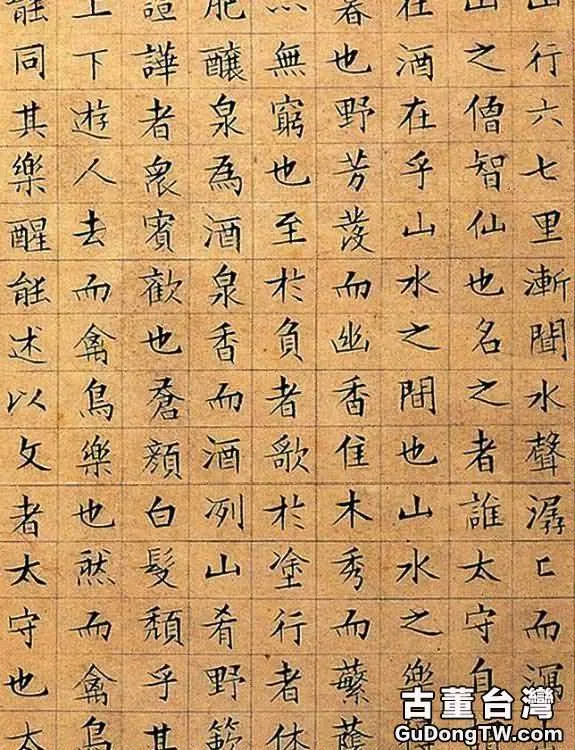 山行六七里漸聞水聲潺々而瀉
山之僧智仙也名之者誰太守自
在酒在乎山水之間也山水之樂
暮也野芳發而幽香佳木秀而繁蔭
無窮也至於負者歌於塗行者休
肥釀泉為酒泉香而酒冽山肴野蔌
諠譁者衆賓歡也蒼顏白髮頹乎其
上下遊人去而禽鳥樂也然而禽鳥
能同其樂醒能述以文者太守也太
古董台灣
GuDongTW.com